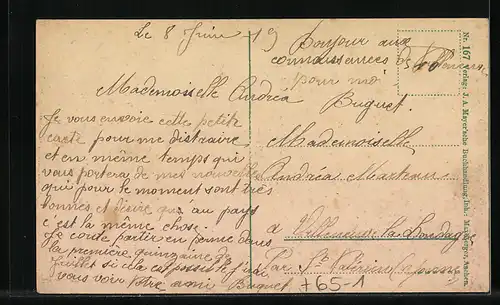 Le 8 Juin 19
Mademoiselle Andréa
Je vous envoie cette petite
carte pour me distraire
et en même temps qui
vous portera de mes nouvelles
qui pour le moment sont très
bonnes et désire qu'au pays
c'est la même chose.
Je compte partir en ferme dans
la première quinzaine de
Juillet si c'est possible j'irai
vous voir Votre ami Buguet
Bonjour aux
connaissances de
pour moi
Buguet.
Mademoiselle
Andréa Marteau
à Villeneuve la
Par St Valérien
+65-1
Nr. 167 Verlag: J. A. Mayer'sche Buchhandlung, Inh.: Aachen.